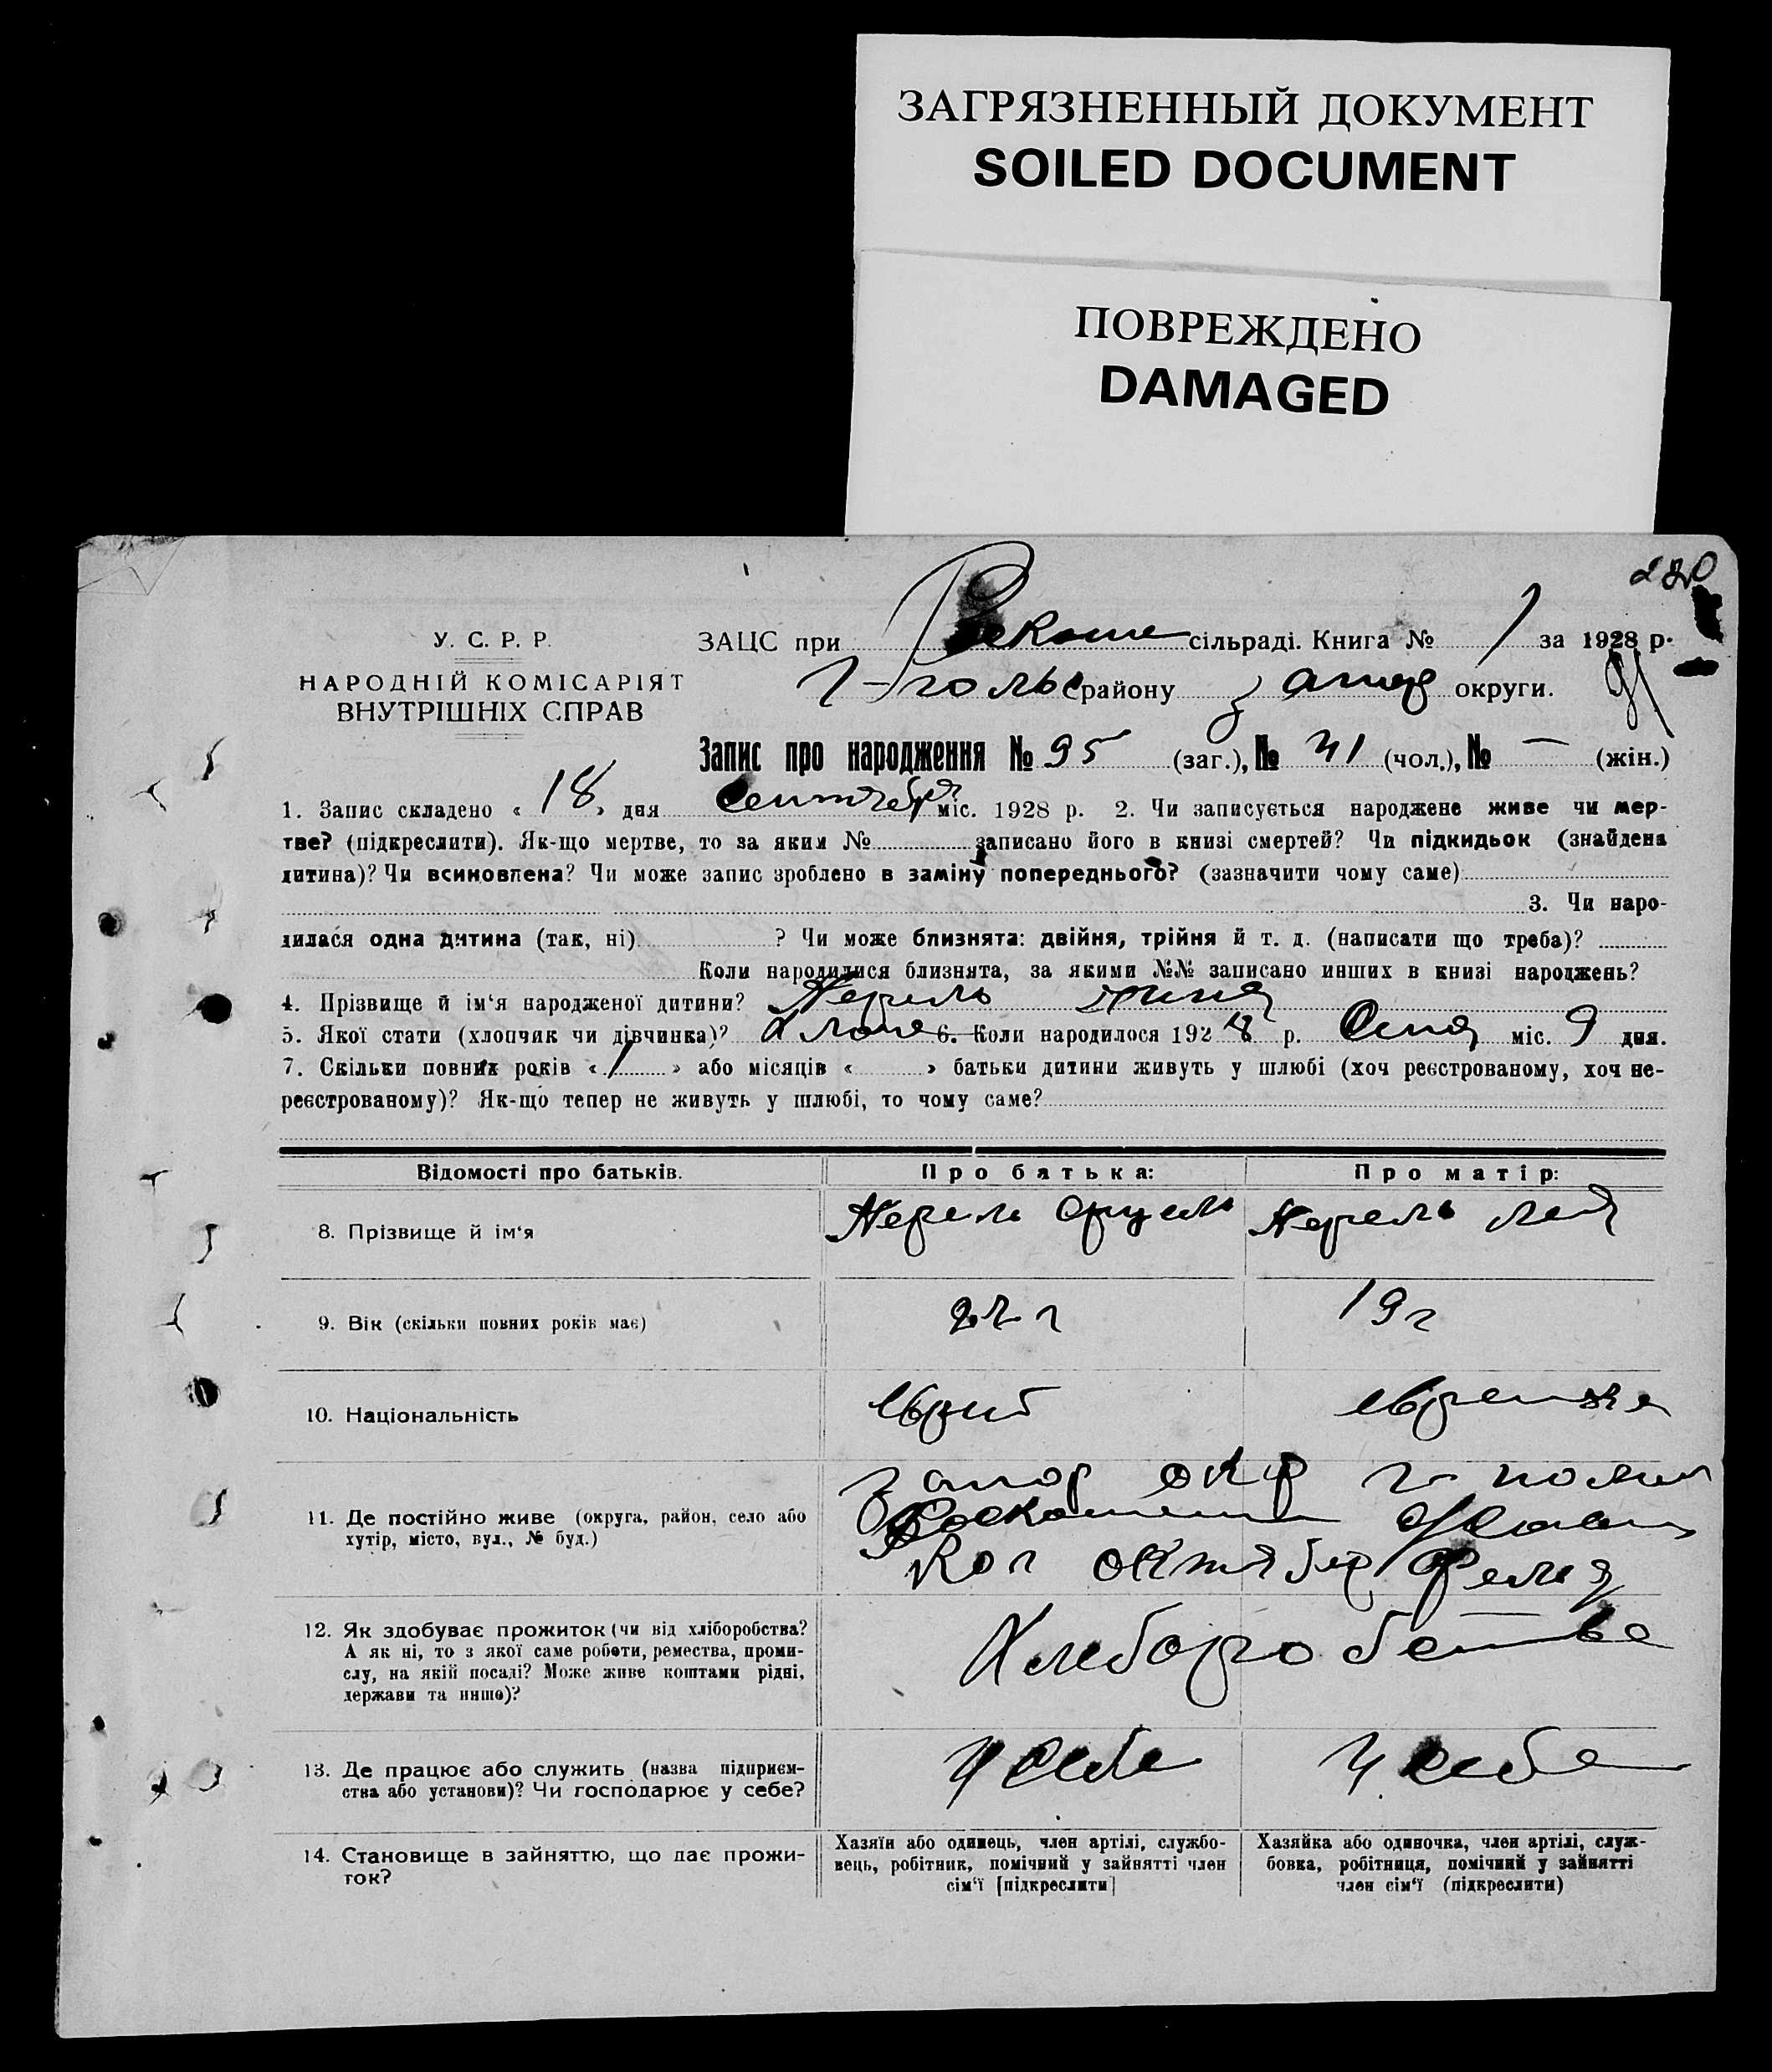 ЗАГРЯЗНЕННЫЙ ДОКУМЕНТ
SOILED DOCUMENT
ПОВРЕЖДЕНО
DAMAGED
У. С. Р. Р.
НАРОДНІЙ КОМІСАРІЯТ
ВНУТРІШНІХ СПРАВ
ЗАЦС при сільраді. Книга № 1 за 1928 р.
Г-поль району Запор округи. 91
Запис про народження № 95 (заг.), № 41 (чол.), № — (жін.)
1. Запис складено « 18 » дня Сентября міс. 1928 р. 2. Чи записується народжене живе чи мер-
тве? (підкреслити). Як-що мертве, то за яким № записано його в книзі смертей? Чи підкидьок (знайдена
дитина)? Чи всиновлена? Чи може запис зроблено в заміну попереднього? (зазначити чому саме)
3. Чи наро-
дилася одна дитина (так, ні) ? Чи може близнята: двійня, трійня й т. д. (написати що треба)?
Коли народилися близнята, за якими №№ записано инших в книзі народжень?
4. Прізвище й ім‘я народженої дитини?
5. Якої стати (хлопчик чи дівчинка)? Хлопе 6. Коли народилося 1928 р. міс. 9 дня.
7. Скільки повних років « 1 » або місяців « » батьки дитини живуть у шлюбі (хоч реєстрованому, хоч не-
реєстрованому)? Як-що тепер не живуть у шлюбі, то чому саме?
Відомості про батьків. Про батька: Про матір:
8. Прізвище й ім‘я
9. Вік (скільки повних років має) 22 г 19 г
10. Національність Єврей Єврейка
11. Де постійно живе (округа, район, село або
хутір, місто, вул., № буд.)
Запор окр Г-поль
Кол октябер Фельд
12. Як здобуває прожиток (чи від хліборобства?
А як ні, то з якої саме роботи, ремества, проми-
слу, на якій посаді? Може живе коштами рідні,
держави та инше)?
Хлеборобство
13. Де працює або служить (назва підприєм-
ства або установи)? Чи господарює у себе?
У себе У себе
14. Становище в зайняттю, що дає прожи-
ток?
Хазяїн або одинець, член артілі, службо-
вець, робітник, помічний у зайнятті член
сім‘ї [підкреслити]
Хазяйка або одиночка, член артілі, служ-
бовка, робітниця, помічний у зайнятті
член сім‘ї (підкреслити)